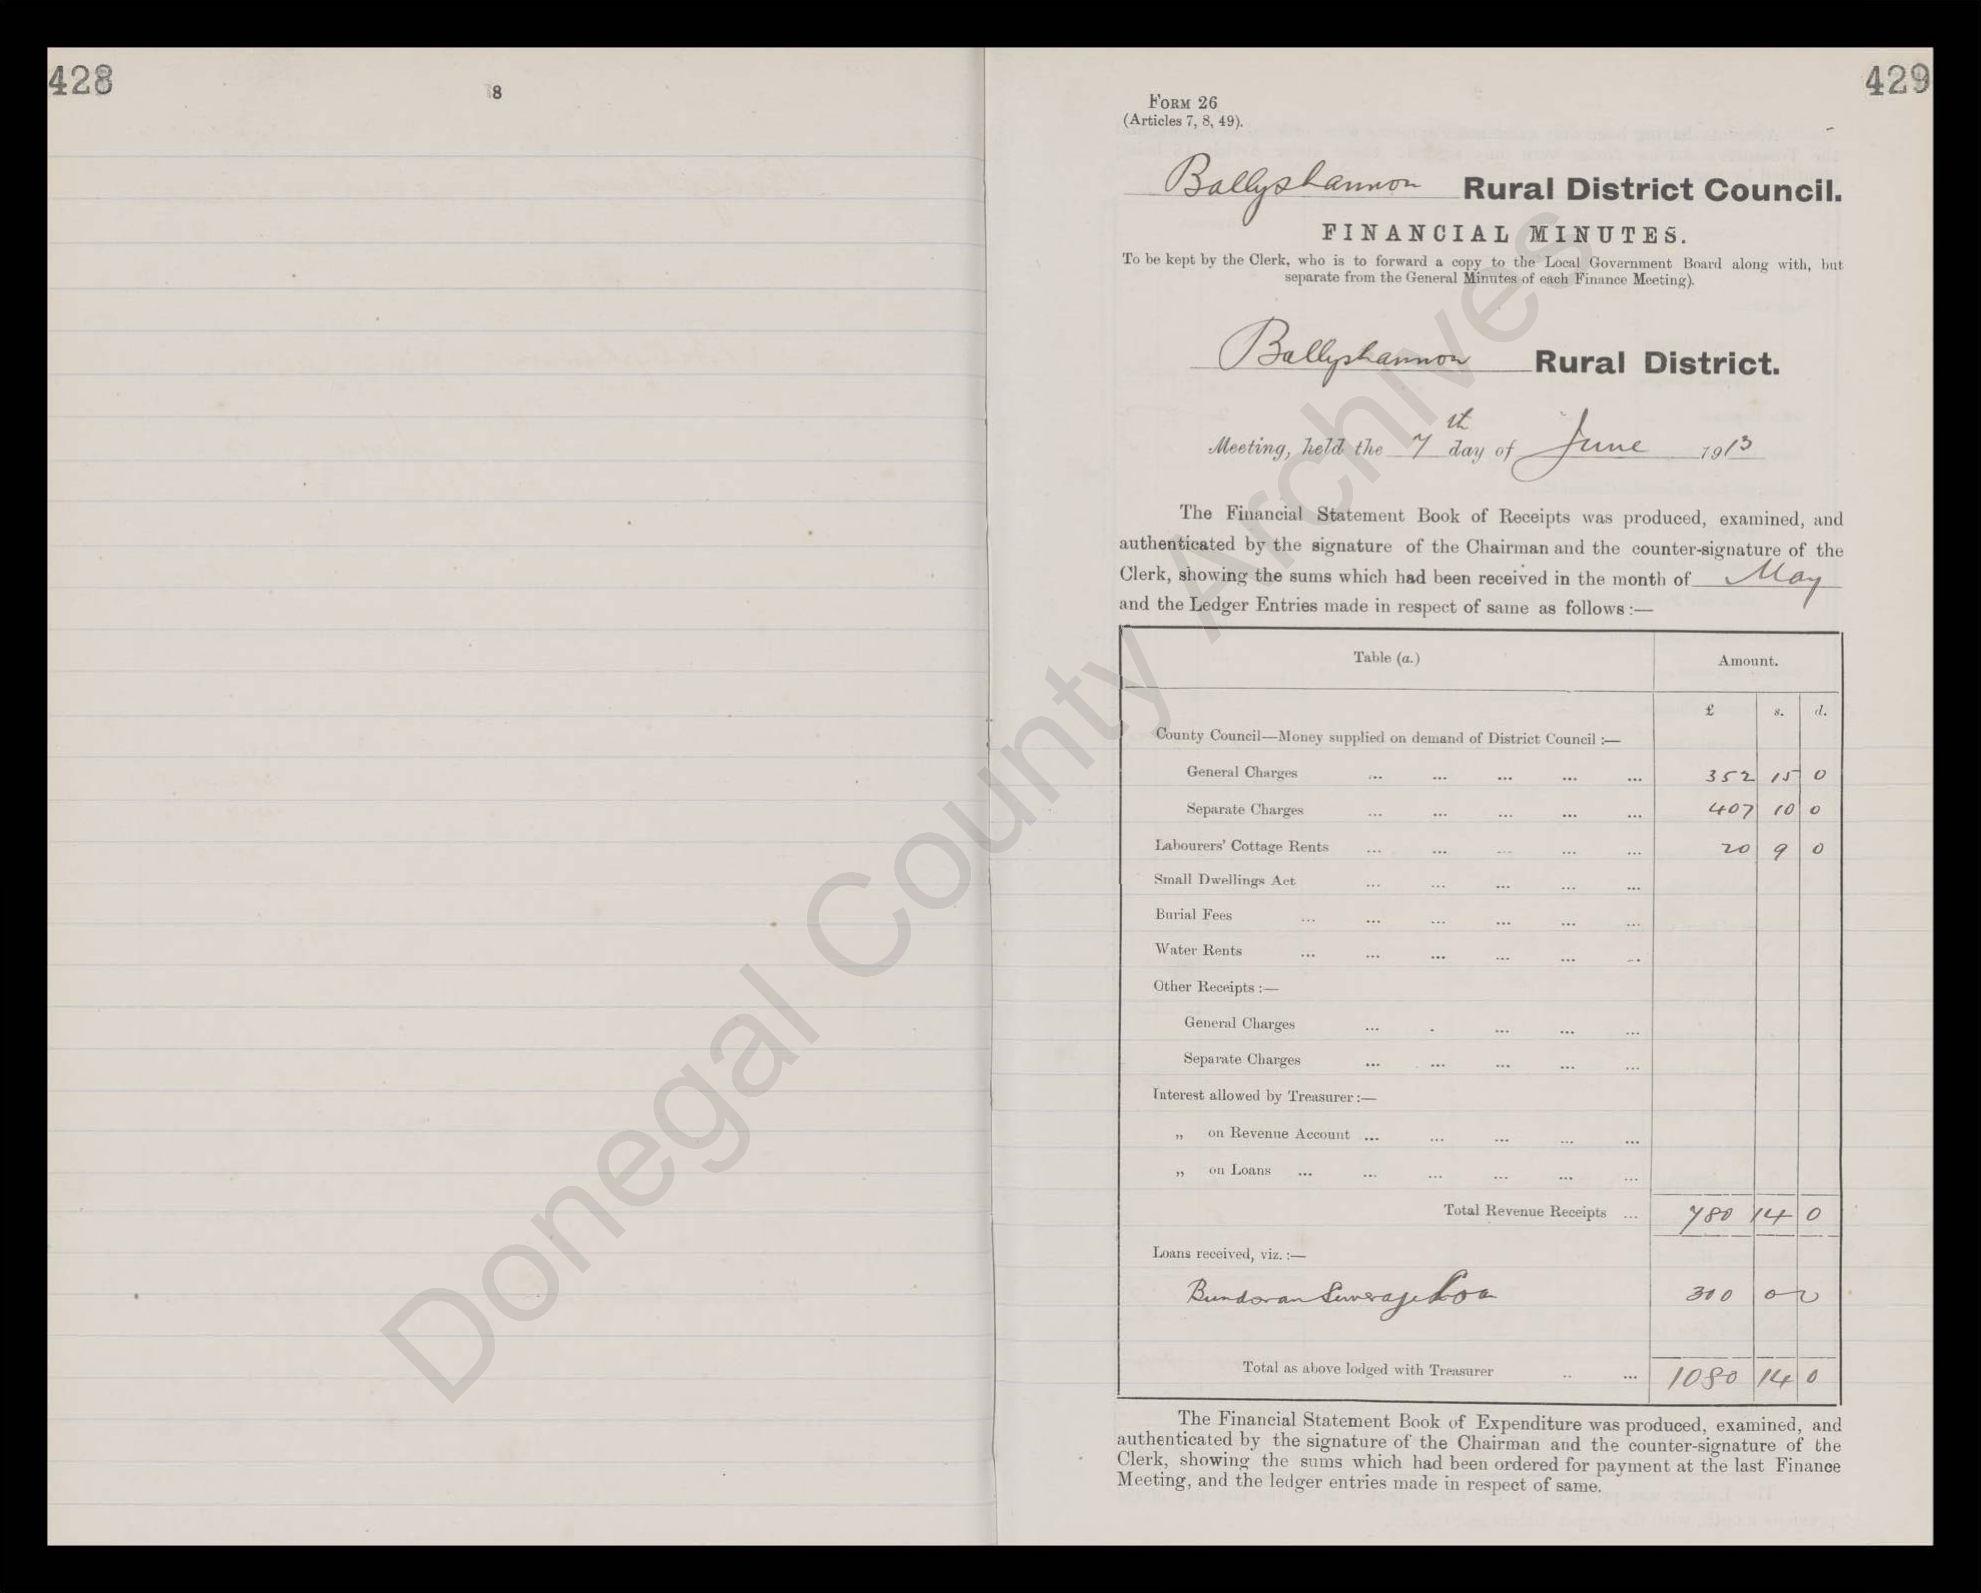 428
8
429
FORM 26
(Articles 7, 8, 49).
Ballyshannon Rural District Council.
FINANCIAL MINUTES.
To be kept by the Clerk, who is to forward a copy to the Local Government Board along with, but
separate from the General Minutes of each Finance Meeting).
Ballyshannon Rural District.
Meeting, held the 7th day of June 1913
The Financial Statement Book of Receipts was produced, examined, and
authenticated by the signature of the Chairman and the counter-signature of the
Clerk, showing the sums which had been received in the month of May
and the Ledger Entries made in respect of same as follows :—
Table (a.) Amount.
£ s. d.
County Council—Money supplied on demand of District Council :—
General Charges ... ... ... ... ... 352 15 0
Separate Charges ... ... ... ... ... 407 10 0
Labourers' Cottage Rents ... ... ... ... ... 20 9 0
Small Dwellings Act ... ... ... ... ...
Burial Fees ... ... ... ... ... ...
Water Rents ... ... ... ... ... ...
Other Receipts :—
General Charges ... . ... ... ...
Separate Charges ... ... ... ... ...
Interest allowed by Treasurer :—
„ on Revenue Account ... ... ... ... ...
„ on Loans ... ... ... ... ... ...
Total Revenue Receipts ... 780 14 0
Loans received, viz. :—
Bundoran Sewerage Loa 300 0 0
Total as above lodged with Treasurer .. ... 1080 14 0
The Financial Statement Book of Expenditure was produced, examined, and
authenticated by the signature of the Chairman and the counter-signature of the
Clerk, showing the sums which had been ordered for payment at the last Finance
Meeting, and the ledger entries made in respect of same.
Donegal County Archives